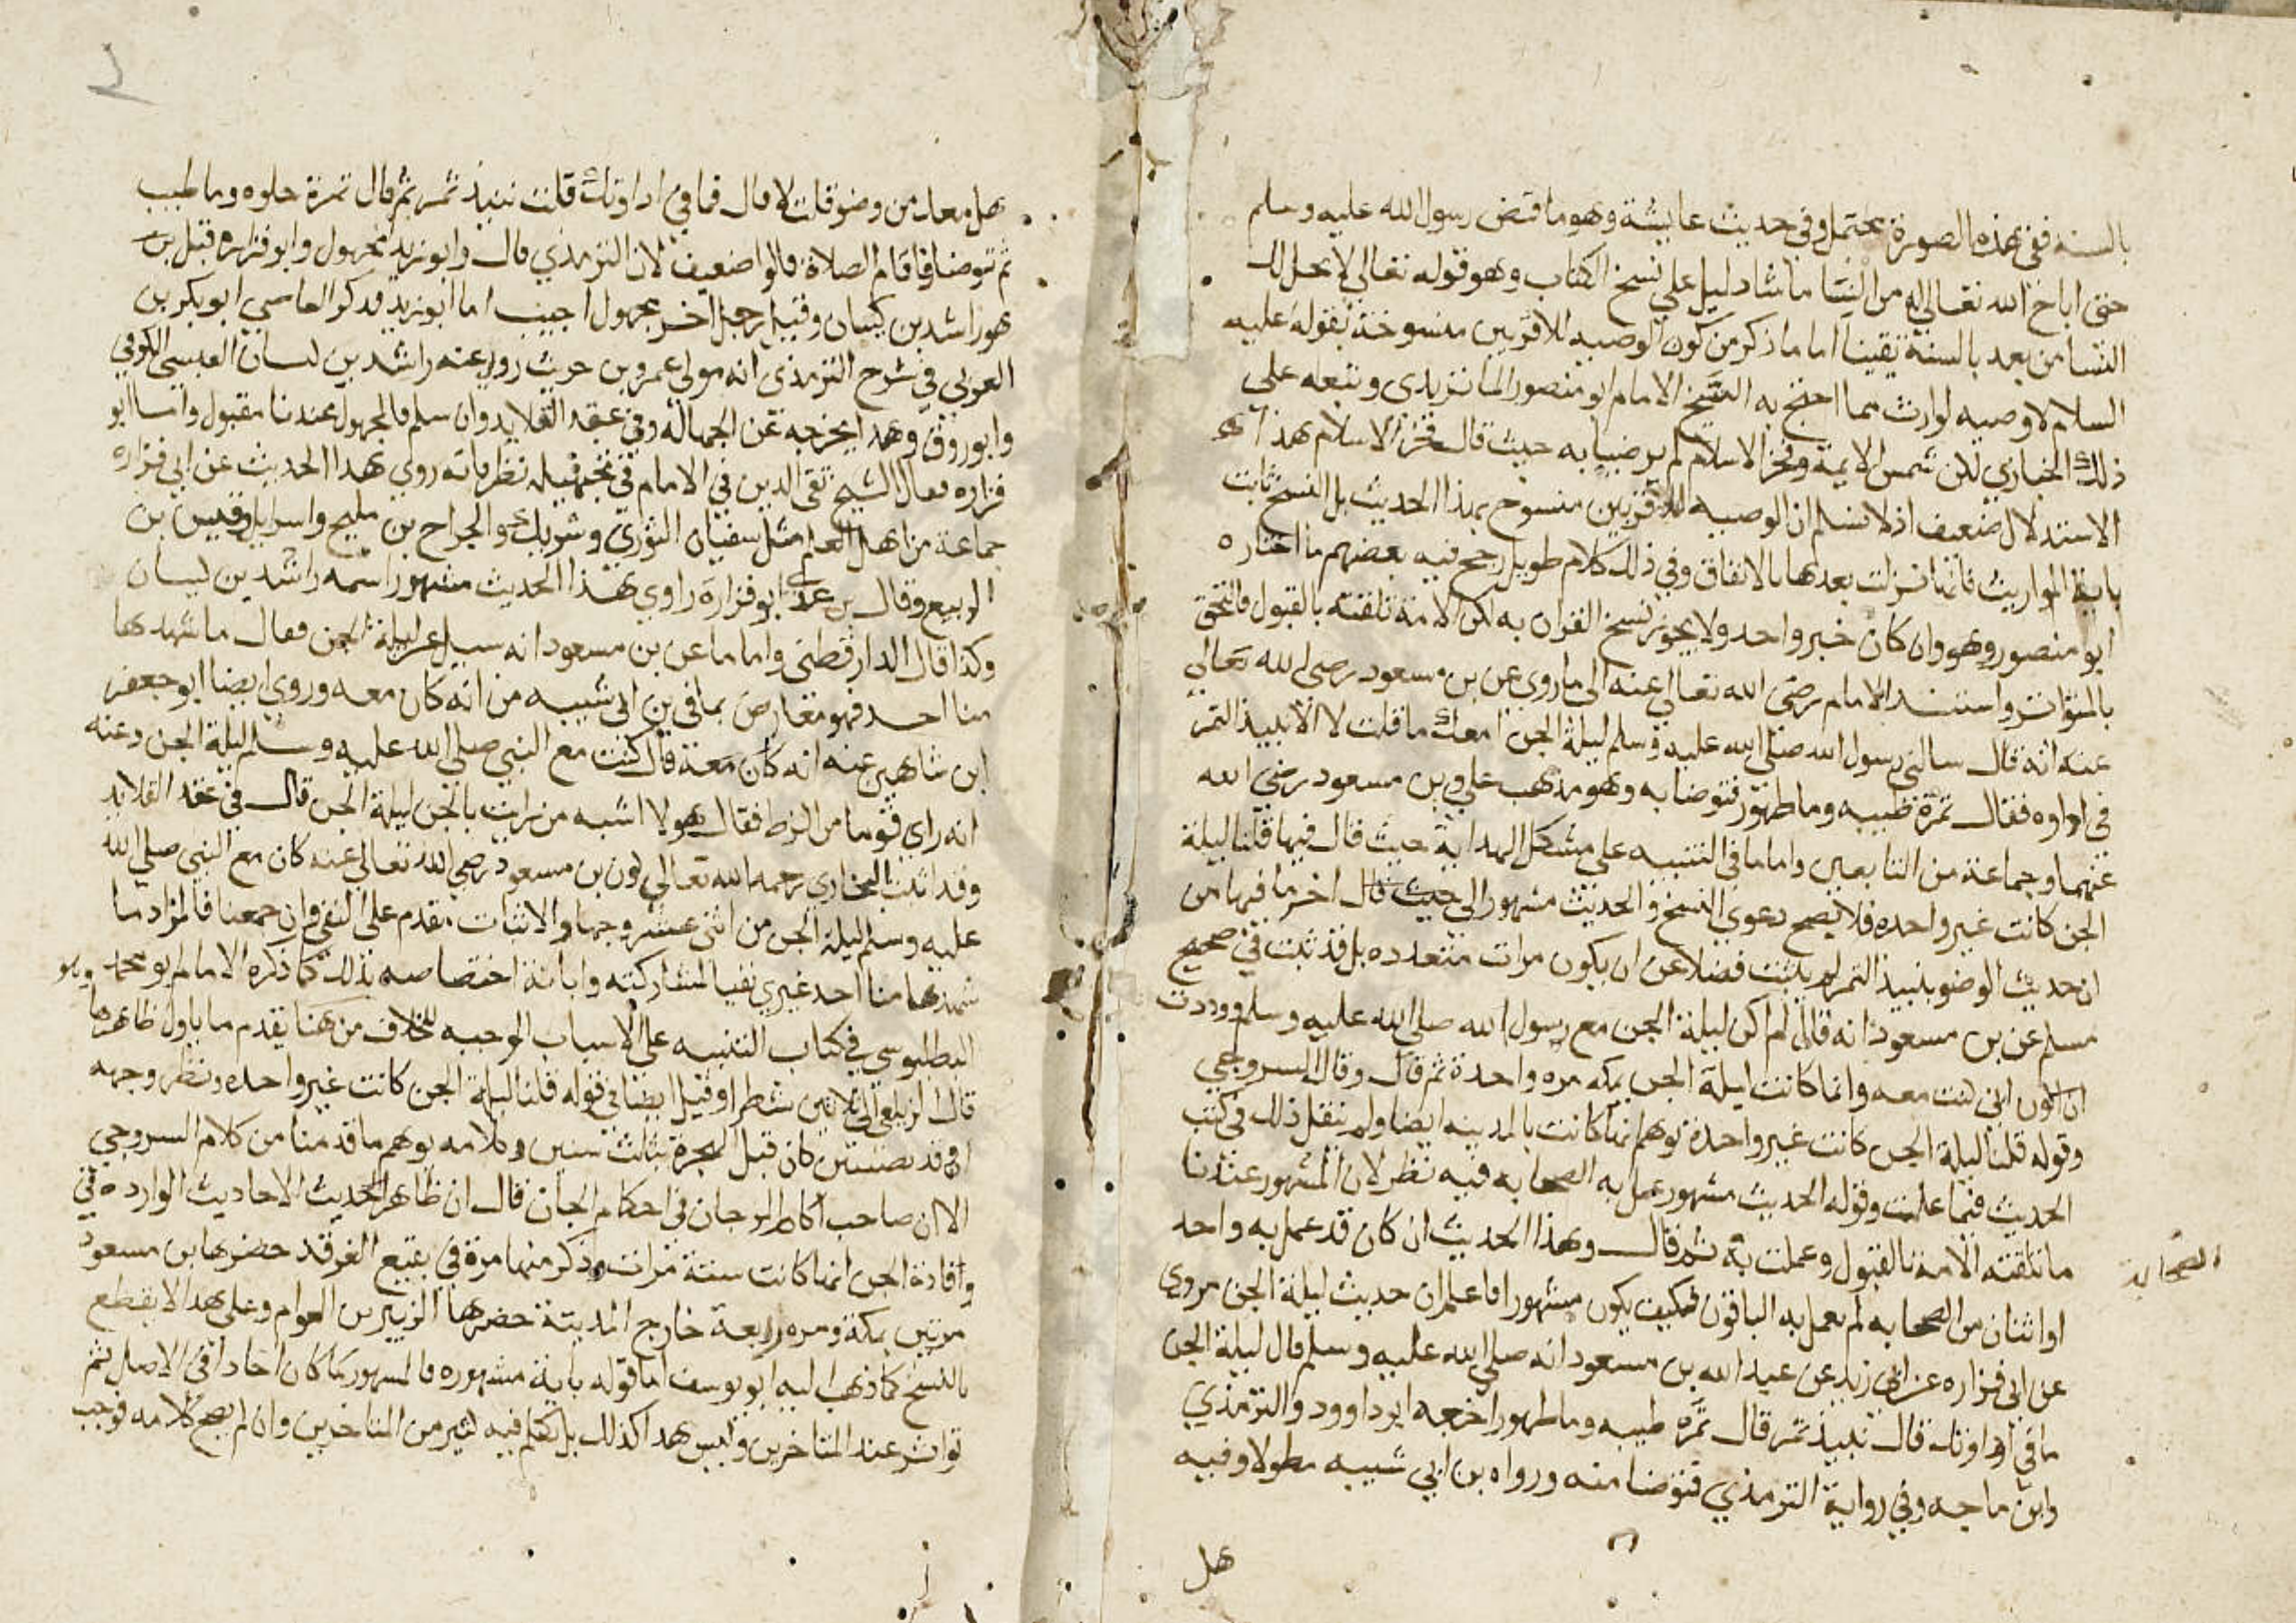 بالسنه ففي هذه الصورة يحتمل وفي حديث عايشة وهو ما قبض رسول الله عليه وسلم
حتى اباح الله تعالى له من النسا ما شا دليل على نسخ الكتاب وهو قوله تعالى لا يحل لك
النسا من بعد بالسنة يقينا اما ما ذكر من كون الوصيه للاقربين منسوخة بقوله عليه
السلام لا وصيه لوارث مما احتج به الشيخ الامام ابو منصور الماتريدى وتبعه على
ذلك الخبازي لكن شمس الايمة وفخر الاسلام لم يرضيا به حيث قال فخر الاسلام هذا
الاستدلال ضعيف اذ لا نسلم ان الوصيه للاقربين منسوخ بهذا الحديث بل النسخ ثابت
باية المواريث فانما نزلت بعدها بالاتفاق وفي ذلك كلام طويل رجح فيه بعضهم ما اختاره
ابو منصور وهو وان كان خبر واحد ولا يجوز نسخ القران به لكن الامة تلقته بالقبول فالتحق
بالمتواتر واستند الامام رضى الله تعالى عنه الى ما روي عن بن مسعود رضى الله تعالى
عنه انه قال سالنى رسول الله صلى الله عليه وسلم ليلة الجن امعك ما قلت لا الا نبيذ التمر
في اداوه فقال تمرة طيبه وما طهور فتوضا به وهو مذهب علي وبن مسعود رضى الله
عنهما وجماعة من التابعين واما ما في التنبيه على مشكل الهداية حيث قال فيها قلنا ليلة
الجن كانت غير واحده فلا يصح دعوى النسخ والحديث مشهور الى حيث قال اخر ما فيها من
ان حديث الوضو بنبيذ التمر لم يثبت فضلا عن ان يكون مرات متعدده بل قد ثبت في صحيح
مسلم عن بن مسعود انه قال لم اكن ليلة الجن مع رسول الله صلى الله عليه وسلم ووددت
ان اكون اني كنت معه وانما كانت ليلة الجن بمكه مره واحدة ثم قال وقال السروجي
وقوله قلنا ليلة الجن كانت غير واحدة توهم انها كانت بالمدينه ايضا ولم ينقل ذلك في كتب
الحديث فيما علمت وقوله الحديث مشهور عمل به الصحابه فيه نظر لان المشهور عندنا
ما تلقته الامة بالقبول وعملت به ثم قال وهذا الحديث ان كان قد عمل به واحد
الصحابة
او اثنان من الصحابه لم يعمل به الباقون فكيف يكون مشهورا فاعلم ان حديث ليلة الجن مروى
عن ابي فزاره عن ابى زيد عن عبد الله بن مسعود انه صلى الله عليه وسلم قال ليلة الجن
ما في اداوتك قال نبيذ تمر قال تمره طيبه وما طهور اخرجه ابو داوود والترمذي
وابن ماجه وفي رواية الترمذي فتوضا منه ورواه بن ابي شيبه مطولا وفيه
هل
هل معك من وضو قلت لا قال فما في اداوتك قلت نبيذ تمر ثم قال تمرة حلوه وما طيب
ثم توضا وقام الصلاة قالوا ضعيف لان الترمذي قال وابو زيد مجهول وابو فزاره قيل بن
هو راشد بن كيسان وقيل رجل اخر مجهول اجيب اما ابو زيد فذكر القاضي ابو بكر بن
العربي في شرح الترمذى انه مولى عمرو بن حريث روى عنه راشد بن كيسان العبسى الكوفي
وابو روق وهذا يخرجه عن الجهالة وفي عقد القلايد وان سلم فالمجهول عندنا مقبول واما ابو
فزاره فقال الشيخ تقى الدين في الامام في تجهيله نظر فانه روى هذا الحديث عن ابي فزاره
جماعة من اهل العلم مثل سفيان الثوري وشريك والجراح بن مليح واسرايل وقيس بن
الربيع وقال بن عدى ابو فزارة راوي هذا الحديث مشهور اسمه راشد بن كيسان
وكذا قال الدارقطنى واما ما عن بن مسعود انه سيل عن ليلة الجن فقال ما شهدها
منا احد فهو معارض بما في بن ابى شيبه من انه كان معه وروى ايضا ابو جعفر
ابن شاهين عنه انه كان معه قال كنت مع النبي صلى الله عليه وسلم ليلة الجن وعنه
انه راي قوما من الزط فقال هولا اشبه من رايت بالجن ليلة الجن قال في عقد القلايد
وقد اثبت البخاري رحمه الله تعالى كون بن مسعود رضي الله تعالى عنه كان مع النبي صلى الله
عليه وسلم ليلة الجن من اثنى عشر وجها والاثبات مقدم على النفى وان جمعنا فالمراد ما
شهدها منا احد غيري نفيا لمشاركته وابانة اختصاصه بذلك كما ذكره الامام ابو محمد
البطليوسي في كتاب التنبيه على الاسباب الموجبه للخلاف من هنا يقدم ما ياول ظاهرها
قال الزيلعى الى ثلاثين شطرا وقيل ايضا في قوله قلنا ليلة الجن كانت غير واحده ونظر وجهه
ان وفد نصيبين كان قبل الهجرة بثلث سنين وكلامه يوهم ما قدمنا من كلام السروجي
الا ان صاحب اكام المرجان في احكام الجان قال ان ظاهر الحديث الاحاديث الوارده في
وفادة الجن انها كانت ستة مرات وذكر منها مرة في بقيع الغرقد حضرها بن مسعود
مرتين بمكة ومره رابعة خارج المدينة حضرها الزبير بن العوام وعلى هذا لا يقطع
بالنسخ كما ذهب اليه ابو يوسف اما قوله باية مشهوره فالمشهور ما كان احادا في الاصل ثم
تواتر عند المتاخرين وليس هذا كذلك بل تكلم فيه كثير من المتاخرين وان لم يصح كلامه فوجب